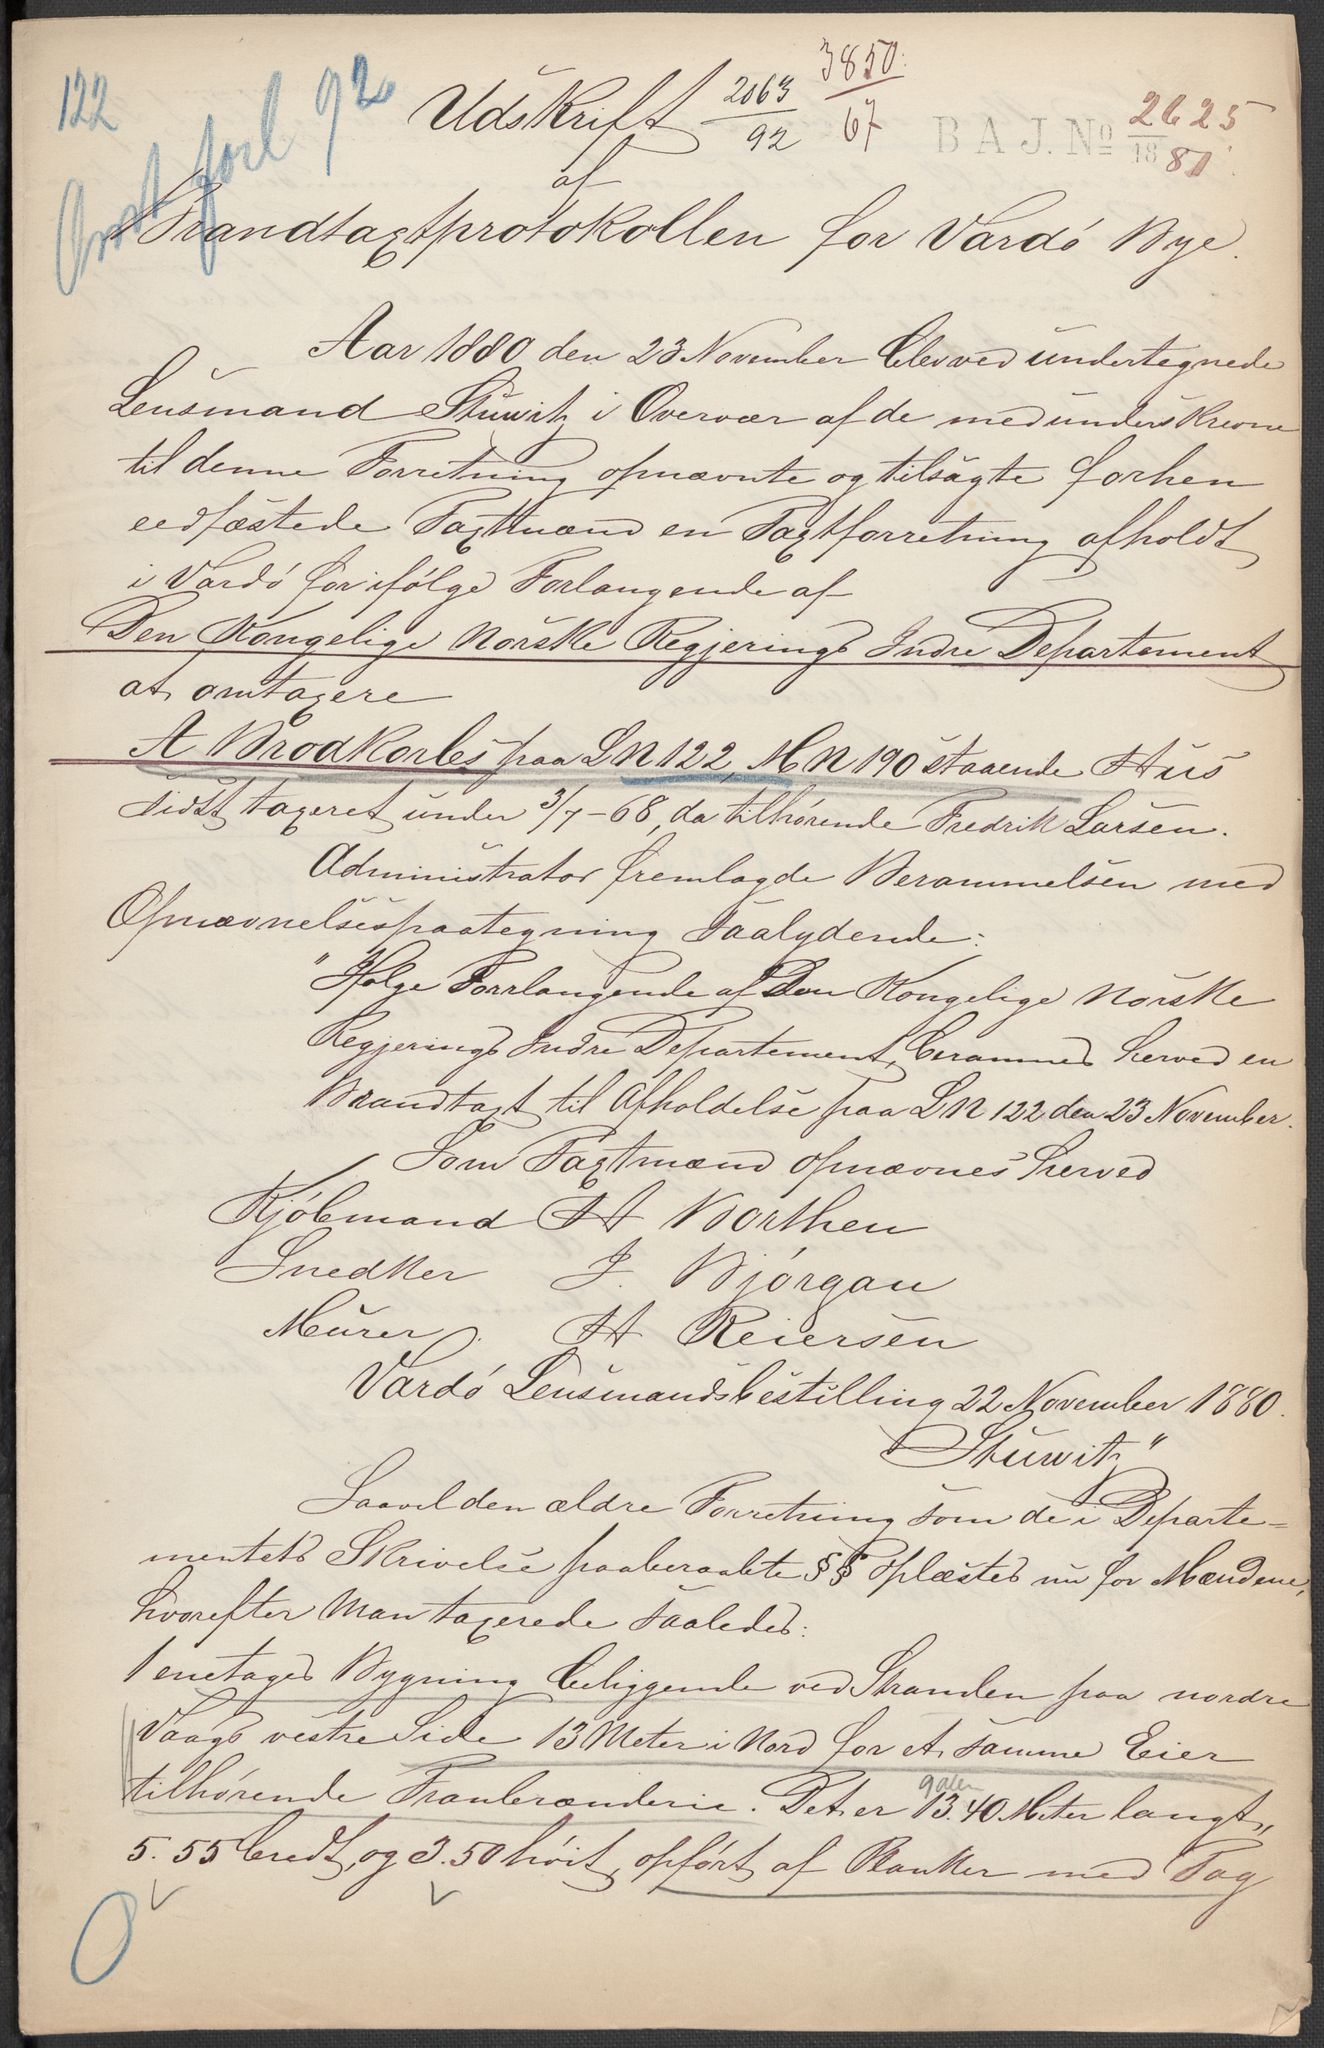 122
forl 92
Udskrift
2063
92
3850
67
B A J. No 2625
1881
af
Brandtaxtprotokollen for Vardö Bye.
Aar 1880 den 23 November blev ved undertegnede
Lensmand Stuwitz i Overvær af de medunderskrevne
til denne Forretning opnævnte og tilsagte forhen
eedfæstede Taxtmænd en Taxtforretning afholdt
i Vardö for ifølge Forlangende af
Den Kongelige Norske Regjerings Indre Departement
at omtaxere
A Brodkorbs paa LN 122, MN 190 staaende Hus
sidst taxeret under 3/7-68, da tilhørende Fredrik Larsen.
Administrator fremlagde Berammelsen med
Opnævnelsespaategning saalydende:
"Ifølge Forrlangende af Den Kongelige Norske
Regjerings Indre Departement, berammes herved en
Brandtaxt til Afholdelse paa LN 122 den 23 November.
Som Taxtmænd opnævnes herved
Kjöbmand A Borthen
Snedker J. Bjørgan
Murer. A Reiersen
Vardö Lensmandsbestilling 22 November 1880.
Stuwitz"
Saavel den ældre Forretning som de i Departe=
mentets Skrivelse paaberaabte §§ oplæstes nu for Mændene,
hvorefter Man taxerede saaledes:
1 enetages Bygning beliggende ved Stranden paa nordre
Vaags vestre Side 13 Meter i Nord for et samme Eier
tilhørende Tranbrænderie. Det er 13.40 Meter langt,
5.55 bredt, og 3.50 høit, opført af Planker med Tag